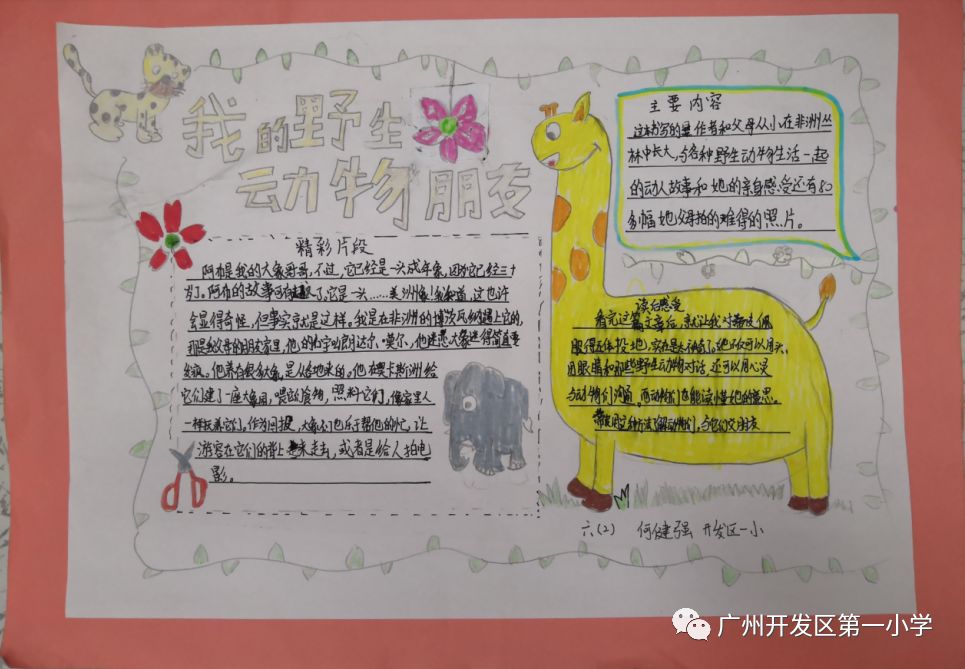 我的野生
动物朋友
主要内容
这本书写的是作者和父母从小在非洲丛
林中长大,与各种野生动物生活一起
的动人故事和她的亲身感受还有80
多幅她父母拍的难得的照片。
精彩片段
阿布是我的大象哥哥,不过,它已经是一头成年象,因为它已经三十
岁了。阿布的故事可有趣了,它是一头……美洲象!我知道,这也许
会显得奇怪,但事实就是这样。我是在非洲的博茨瓦纳遇上它的,
那是我父母的朋友家里,他的名字叫朗达尔·莫尔,他迷恋大象迷得简直要
发疯。他养有很多大象,是从各地来的。他在奥卡斯洲给
它们建了一座大象园,喂它们食物,照料它们,像家里人
一样抚养它们,作为回报,大象们也乐于帮他的忙,让
游客在它们的背上来走去,或者是给人拍电
影。
读后感受
看完这篇文章后,就让我对蒂皮佩
服得五体投地,实在是太神奇了。她不仅可以用头、
用眼睛和那些野生动物对话,还可以用心灵
与动物们沟通,而动物们也能读懂她的意思。
用这种方法了解动物们,与它们交朋友
六(2) 何健强 开发区一小
广州开发区第一小学